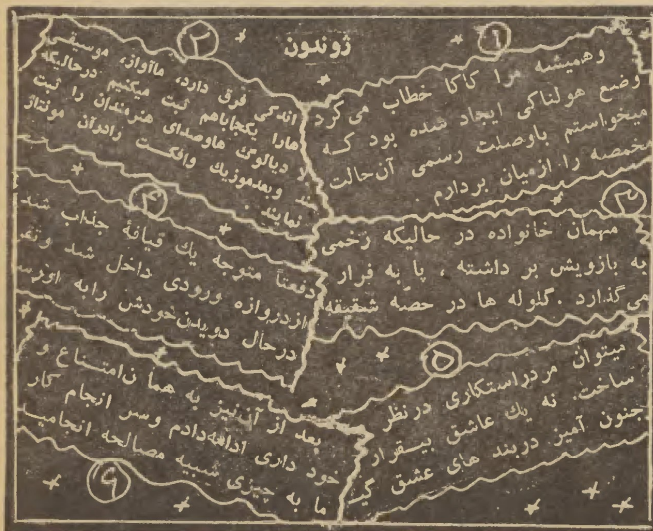 ژوندون
۱
وهمیشه مرا کاکا خطاب می کرد
وضع هولناکی ایجاد شده بود که
میخواستم باوصلت رسمی آن حالت
مخمصه را ازمیان بردارم .
۲
اندکی فرق دارد، ماآواز، موسیقی
هارا یکجاباهم ثبت میکنیم درحالیکه
لا دیالوگ هاوصدای هنرمندان را ثبت
ند وبعدموزیک وافکت رادرآن مونتاژ
نمایند .
۳
مهمان خانواده در حالیکه زخمی
به بازویش بر داشته ، پا به فرار
می گذارد . گلوله ها در حصهٔ شقیقه
۴
دفعتاً متوجه یک قیافهٔ جذاب شد
ازدروازه ورودی داخل شد وتقر
درحال دویدن خودش رابه اورس
۵
میتوان مردراستکاری درنظر
ساخت. نه یک عاشق بیقرار
جنون آمیز دربند های عشق گیـ
۶
بعد از آن نیز به هما ن امتناع و
خود داری ادامه دادم وسر انجام کار
ما به چیزی شبیه مصالحه انجامیـ